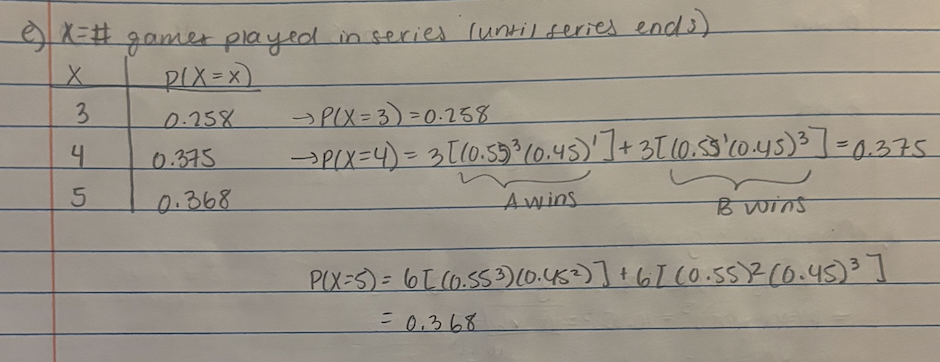 e) X=# games played in series (until series ends)
X P(X=x)
3 0.258 →P(X=3)=0.258
4 0.375 →P(X=4)= 3[(0.55)³(0.45)¹]+3[(0.55)¹(0.45)³]=0.375
5 0.368 A wins B wins
P(X=5)= 6[(0.55³)(0.45²)]+6[(0.55)²(0.45)³]
= 0.368